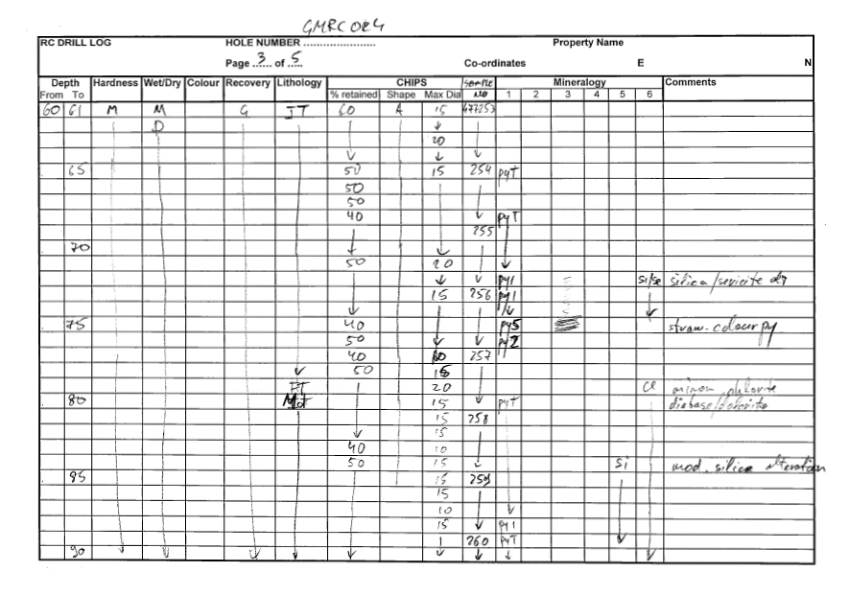 GMRC024
RC DRILL LOG HOLE NUMBER ........................ Property Name
Page ..3.. of ..5.. Co-ordinates E N
Depth Hardness Wet/Dry Colour Recovery Lithology CHIPS SAMPLE Mineralogy Comments
From To % retained Shape Max Dia NO 1 2 3 4 5 6
60 61 M M G IT 60 A 15 477253
D ↓
20
↓ ↓ ↓
65 50 15 254 pyT
50
50
40 ↓ pyT
255
70 ↓ ↓
50 20 ↓
↓ ↓ py1 si/se silica/sericite
15 256 py1
↓ ↓ ↓
75 40 py5 straw-colour py
50 ↓ ↓ py2
40 257
↓ 50 15
20 cl minor chlorite
80 15 ↓ pyT diabase/dolerite
15 258
↓ 15
40 10
50 15 ↓ si mod. silica alteration
85 15 259
15
10 ↓
15 ↓ py1
260 pyT ↓
90 ↓ ↓ ↓ ↓ ↓ ↓ ↓ ↓ ↓